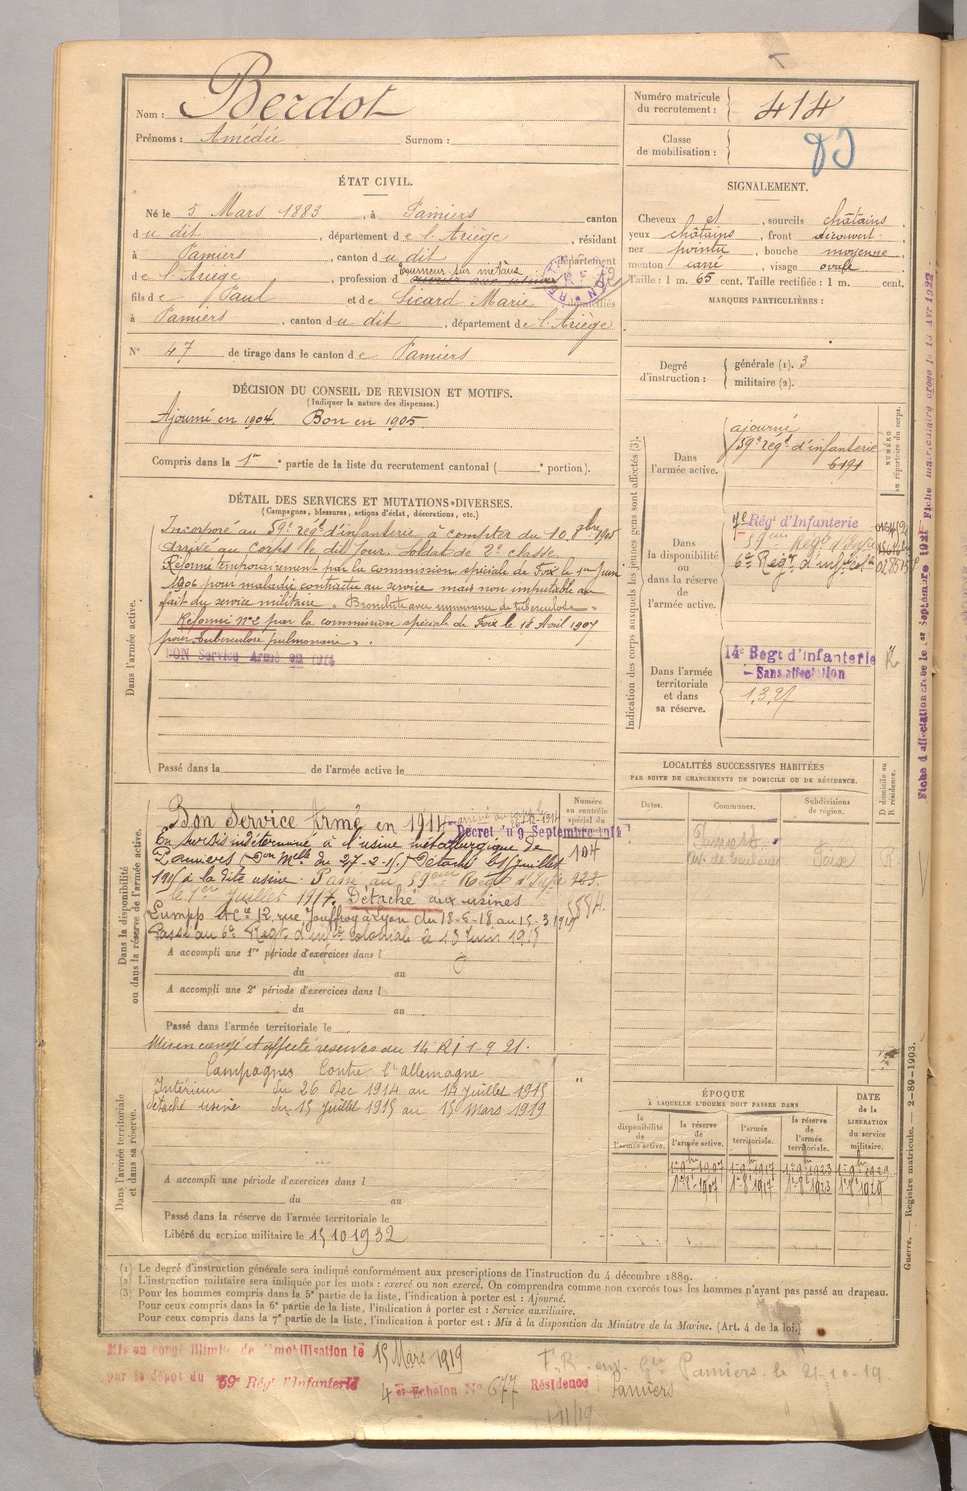 Nom : Berdot
Prénoms : Amédée Surnom :
Numéro matricule
du recrutement : 414
Classe
de mobilisation :
ÉTAT CIVIL.
Né le 5 Mars 1883, à Pamiers canton
du dit, département de l'Ariège, résidant
à Pamiers, canton du dit département
de l'Ariège, profession de tourneur sur métaux
fils de Paul et de Sicard Marie domiciliés
à Pamiers, canton du dit, département de l'Ariège
N° 47 de tirage dans le canton de Pamiers
SIGNALEMENT.
Cheveux et, sourcils châtains
yeux châtains, front découvert
nez pointu, bouche moyenne
menton carré, visage ovale
Taille : 1 m. 65 cent. Taille rectifiée : 1 m. cent.
MARQUES PARTICULIÈRES :
Degré
d'instruction :
générale (1). 3
militaire (2).
DÉCISION DU CONSEIL DE REVISION ET MOTIFS.
(Indiquer la nature des dispenses.)
Ajourné en 1904. Bon en 1905.
Compris dans la 1re partie de la liste du recrutement cantonal ( portion).
DÉTAIL DES SERVICES ET MUTATIONS DIVERSES.
(Campagnes, blessures, actions d'éclat, décorations, etc.)
Dans l'armée active.
Incorporé au 59e régt d'infanterie à compter du 10 8bre 1905
arrivé au corps le dit jour. Soldat de 2e classe
Réformé temporairement par la commission spéciale de Foix le 1er Juin
1906 pour maladie contractée au service mais non imputable au
fait du service militaire « Bronchite avec imminence de tuberculose »
Réformé N°2 par la commission spéciale de Foix le 18 Avril 1907
pour Tuberculose pulmonaire ».
BON Service Armé en 1914
Passé dans la de l'armée active le
Indication des corps auxquels les jeunes gens sont affectés (3).
NUMÉRO
au répertoire du corps.
Dans
l'armée active.
ajourné
59e régt d'infanterie
6191
Dans
la disponibilité
ou
dans la réserve
de
l'armée active.
7e Régt d'Infanterie
59eme Régt d'Infie
6e Régt d'infie col.
Dans l'armée
territoriale
et dans
sa réserve.
14e Régt d'Infanterie
Sans affectation
LOCALITÉS SUCCESSIVES HABITÉES
PAR SUITE DE CHANGEMENTS DE DOMICILE OU DE RÉSIDENCE.
D domicile ou
R résidence.
Dates.
Communes.
Subdivisions
de région.
Pamiers
Foix
R
Dans la disponibilité
ou dans la réserve de l'armée active.
Numéro
au contrôle
spécial du
Bon Service Armé en 1914
Décret du 9 Septembre 1914
En sursis indéterminé à l'usine métallurgique de
Pamiers (Don Melle du 27-2-15) Détaché le 15 Juillet
1915 à la dite usine. Passé au 59eme Régt d'Infie
le 1er Juillet 1917. Détaché aux usines
Lumpp et Cie 12 rue Jouffroy à Lyon du 18-5-18 au 15-3 1919
Passé au 6e Régt d'infie coloniale le 13 Juin 1918
104
A accompli une 1re période d'exercices dans l
du au
A accompli une 2e période d'exercices dans l
du au
Passé dans l'armée territoriale le
Mis en congé et affecté réserves du 14 RI 1-9 21.
Dans l'armée territoriale
et dans sa réserve.
Campagnes Contre l'allemagne
Intérieur du 26 Dec 1914 au 14 Juillet 1915
détaché usine du 15 Juillet 1915 au 15 Mars 1919
A accompli une période d'exercices dans l
du au
Passé dans la réserve de l'armée territoriale le
Libéré du service militaire le 15 10 1932
ÉPOQUE
À LAQUELLE L'HOMME DOIT PASSER DANS
DATE
de la
LIBÉRATION
du service
militaire.
la
disponibilité
de
l'armée active.
la réserve
de
l'armée active.
l'armée
territoriale.
la réserve
de
l'armée
territoriale.
1er 9bre 1907 1er 9bre 1917 1er 9bre 1923 1er 9bre 1929
(1) Le degré d'instruction générale sera indiqué conformément aux prescriptions de l'instruction du 4 décembre 1889.
(2) L'instruction militaire sera indiquée par les mots : exercé ou non exercé. On comprendra comme non exercés tous les hommes n'ayant pas passé au drapeau.
(3) Pour les hommes compris dans la 5e partie de la liste, l'indication à porter est : Ajourné.
Pour ceux compris dans la 6e partie de la liste, l'indication à porter est : Service auxiliaire.
Pour ceux compris dans la 7e partie de la liste, l'indication à porter est : Mis à la disposition du Ministre de la Marine. (Art. 4 de la loi.)
Guerre. — Registre matricule. 2-89-1903.
Mis en congé illimité de démobilisation le 15 Mars 1919
par le dépôt du 59e Régt d'Infanterie
4e Echelon N° 677 Résidence Pamiers
Pamiers. le 21-10-19